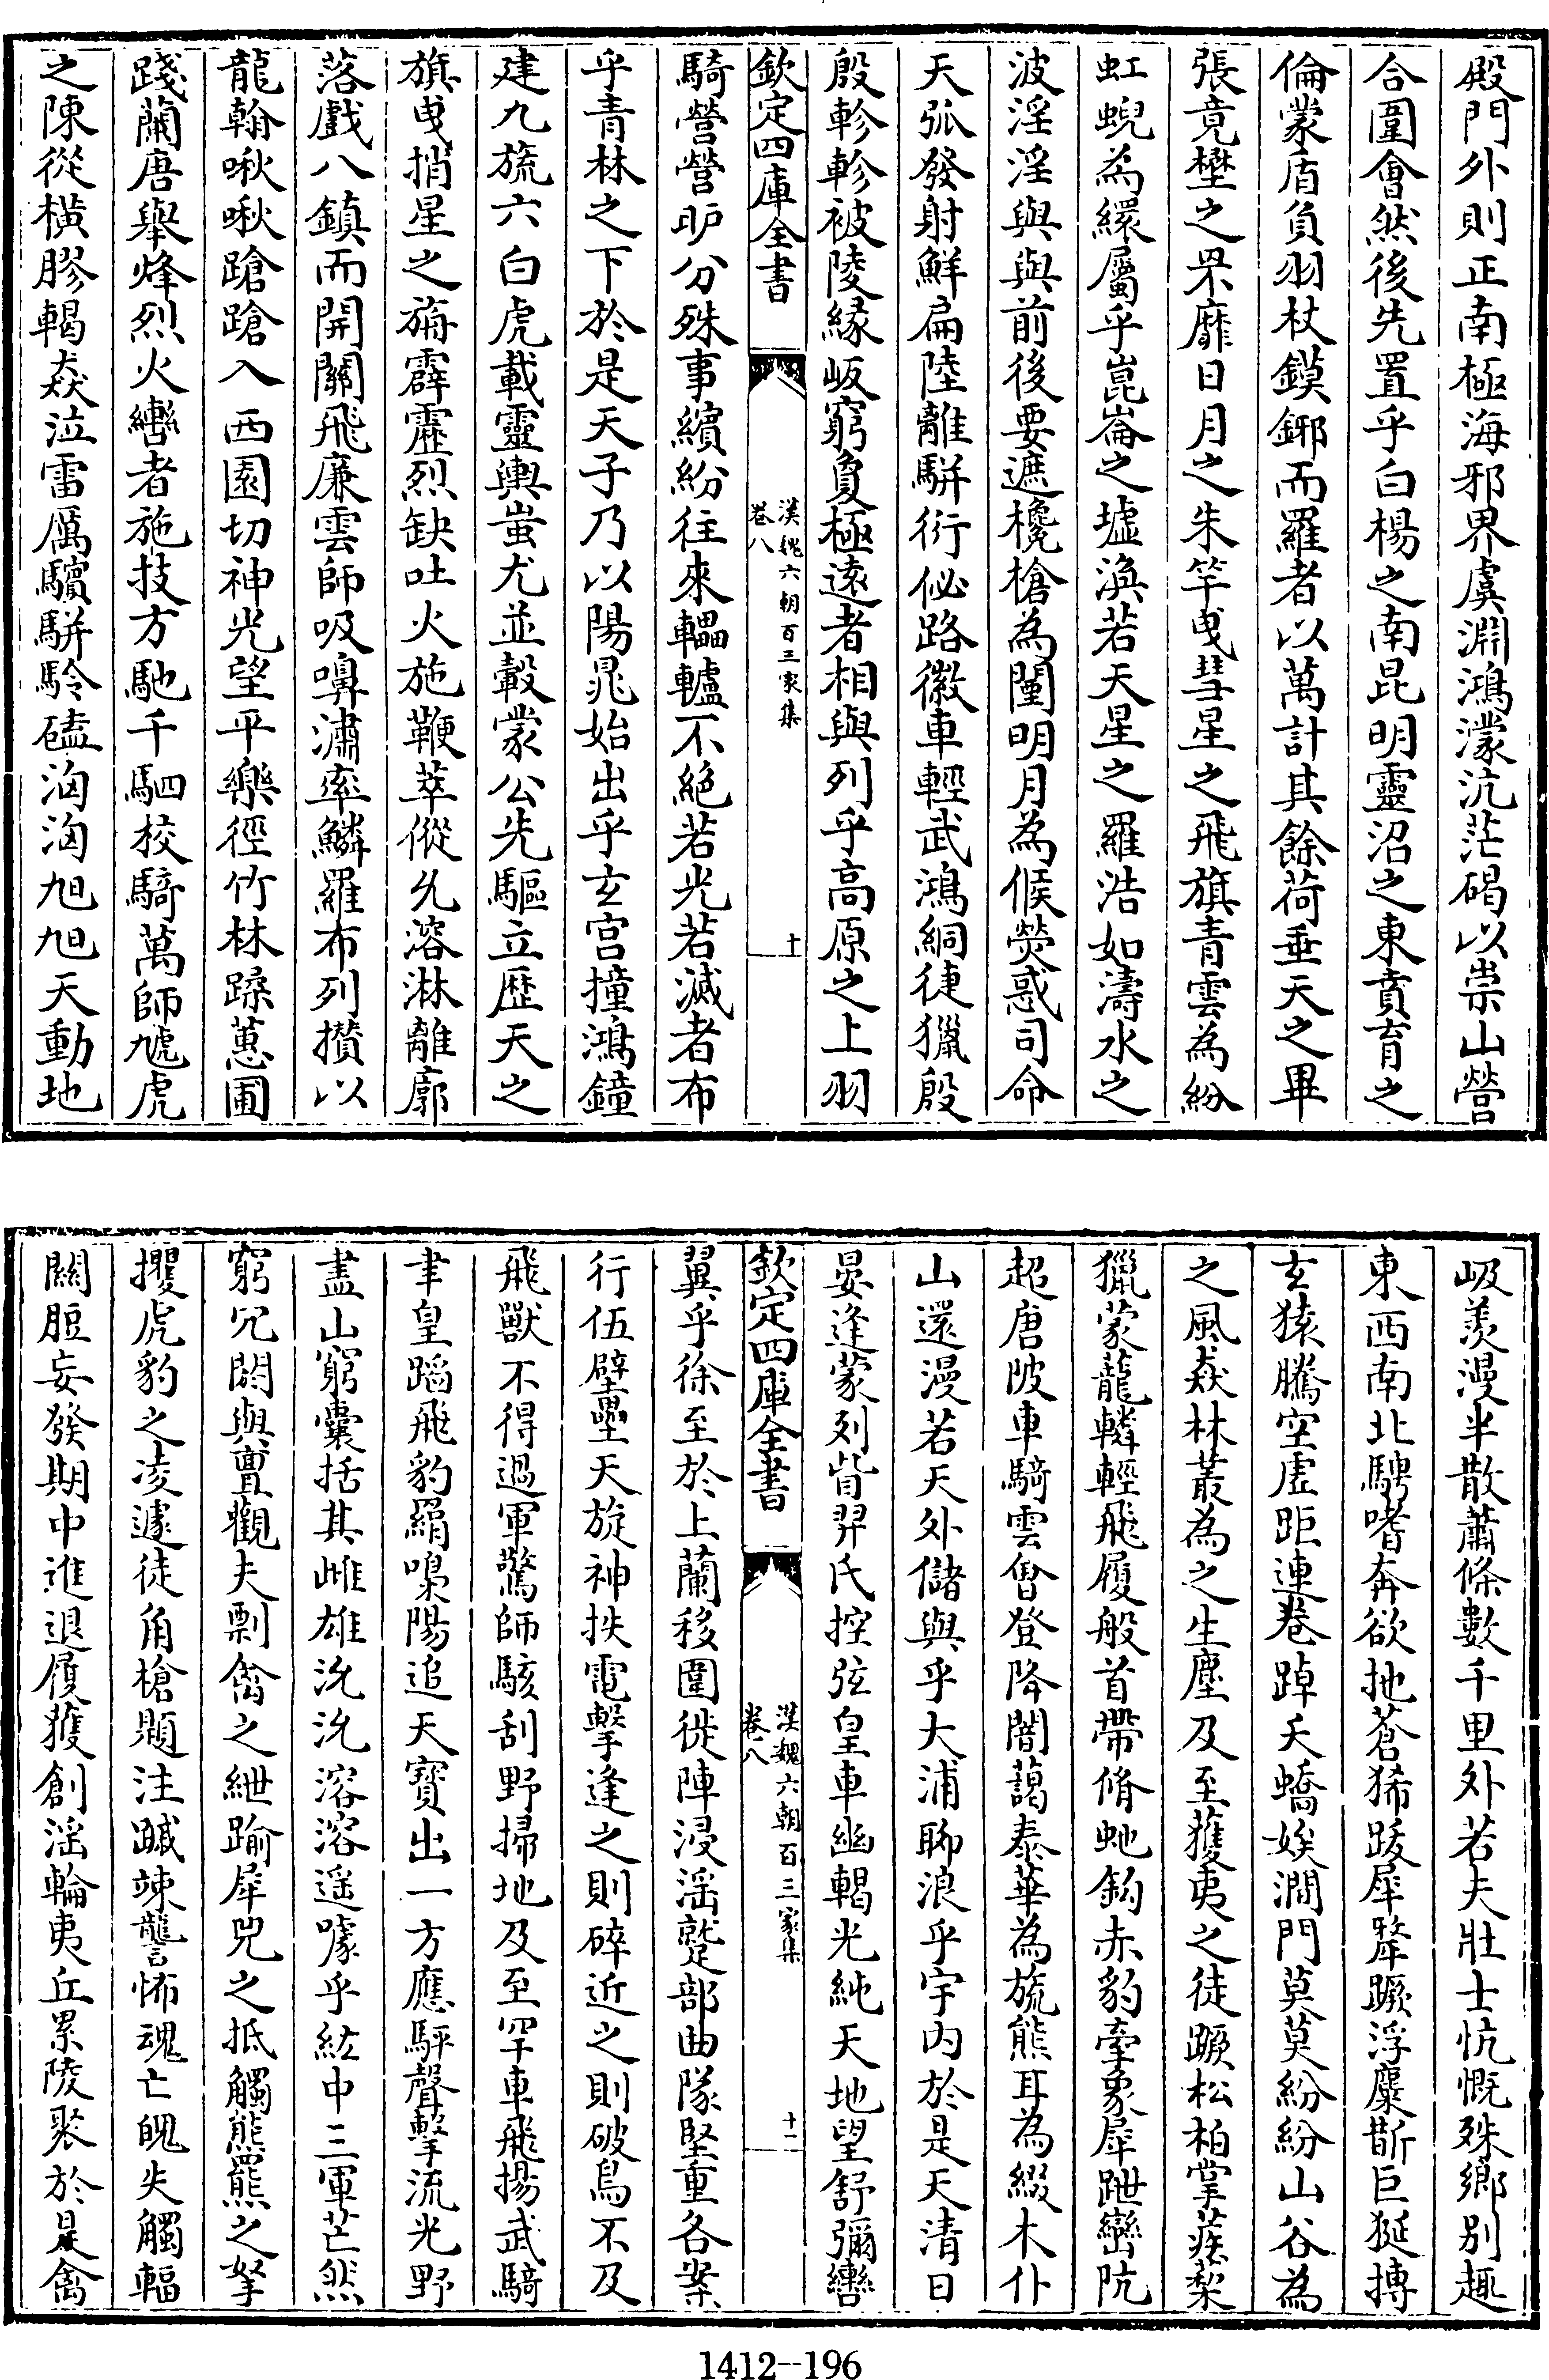 殿門外則正南極海邪界虞淵鴻濛沆茫碣以崇山營
合圍會然後先置乎白楊之南昆明靈沼之東賁育之
倫蒙盾負羽杖鏌鋣而羅者以萬計其餘荷垂天之畢
張竟壄之罘靡日月之朱竿曳彗星之飛旗青雲為紛
虹蜺為繯屬乎崑崙之墟渙若天星之羅浩如濤水之
波淫淫與與前後要遮欃槍為闉明月為候熒惑司命
天弧發射鮮扁陸離駢衍佖路徽車輕武鴻絧徢獵殷
殷軫軫被陵緣岅窮敻極遠者相與列乎高原之上羽
欽定四庫全書
漢魏六朝百三家集
卷八
十
騎營營昈分殊事繽紛往來轠轤不絕若光若滅者布
乎青林之下於是天子乃以陽晁始出乎玄宫撞鴻鐘
建九旒六白虎載靈輿蚩尤並轂蒙公先驅立歷天之
旗曳捎星之旃霹靂烈缺吐火施鞭萃傱允溶淋離廓
落戲八鎮而開關飛廉雲師吸嚊潚率鱗羅布列攢以
龍翰啾啾蹌蹌入西園切神光望平樂徑竹林蹂蕙圃
踐蘭唐舉烽烈火轡者施技方馳千駟校騎萬師虓虎
之陳從横膠輵猋泣雷厲驞駍駖磕洶洶旭旭天動地
岋羨漫半散蕭條數千里外若夫壯士忼慨殊鄉别趣
東西南北騁嗜奔欲拖蒼狶跋犀犛蹶浮麋斮巨狿搏
玄猿騰空虛距連卷踔夭蟜娭澗門莫莫紛紛山谷為
之風猋林叢為之生塵及至獲夷之徒蹶松柏掌蒺藜
獵蒙蘢轔輕飛履般首帶脩虵鈎赤豹摼象犀跇巒阬
超唐陂車騎雲會登降闇藹泰華為旒熊耳為綴木仆
山還漫若天外儲與乎大浦聊浪乎宇内於是天清日
晏逢蒙列眥羿氏控弦皇車幽輵光純天地望舒彌轡
欽定四庫全書
漢魏六朝百三家集
卷八
十一
翼乎徐至於上蘭移圍徙陣浸淫蹵部曲隊堅重各案
行伍壁壘天旋神抶電擊逢之則碎近之則破鳥不及
飛獸不得過軍驚師駭刮野掃地及至罕車飛揚武騎
聿皇蹈飛豹羂嘄陽追天寶出一方應駍聲擊流光野
盡山窮囊括其雌雄沇沇溶溶遥噱乎紘中三軍芒然
窮冘閼與亶觀夫剽禽之紲踰犀兕之抵觸熊羆之挐
攫虎豹之凌遽徒角槍題注蹴竦讋怖魂亡魄失觸輻
關脰妄發期中進退履獲創淫輪夷丘累陵聚於是禽
1412--196